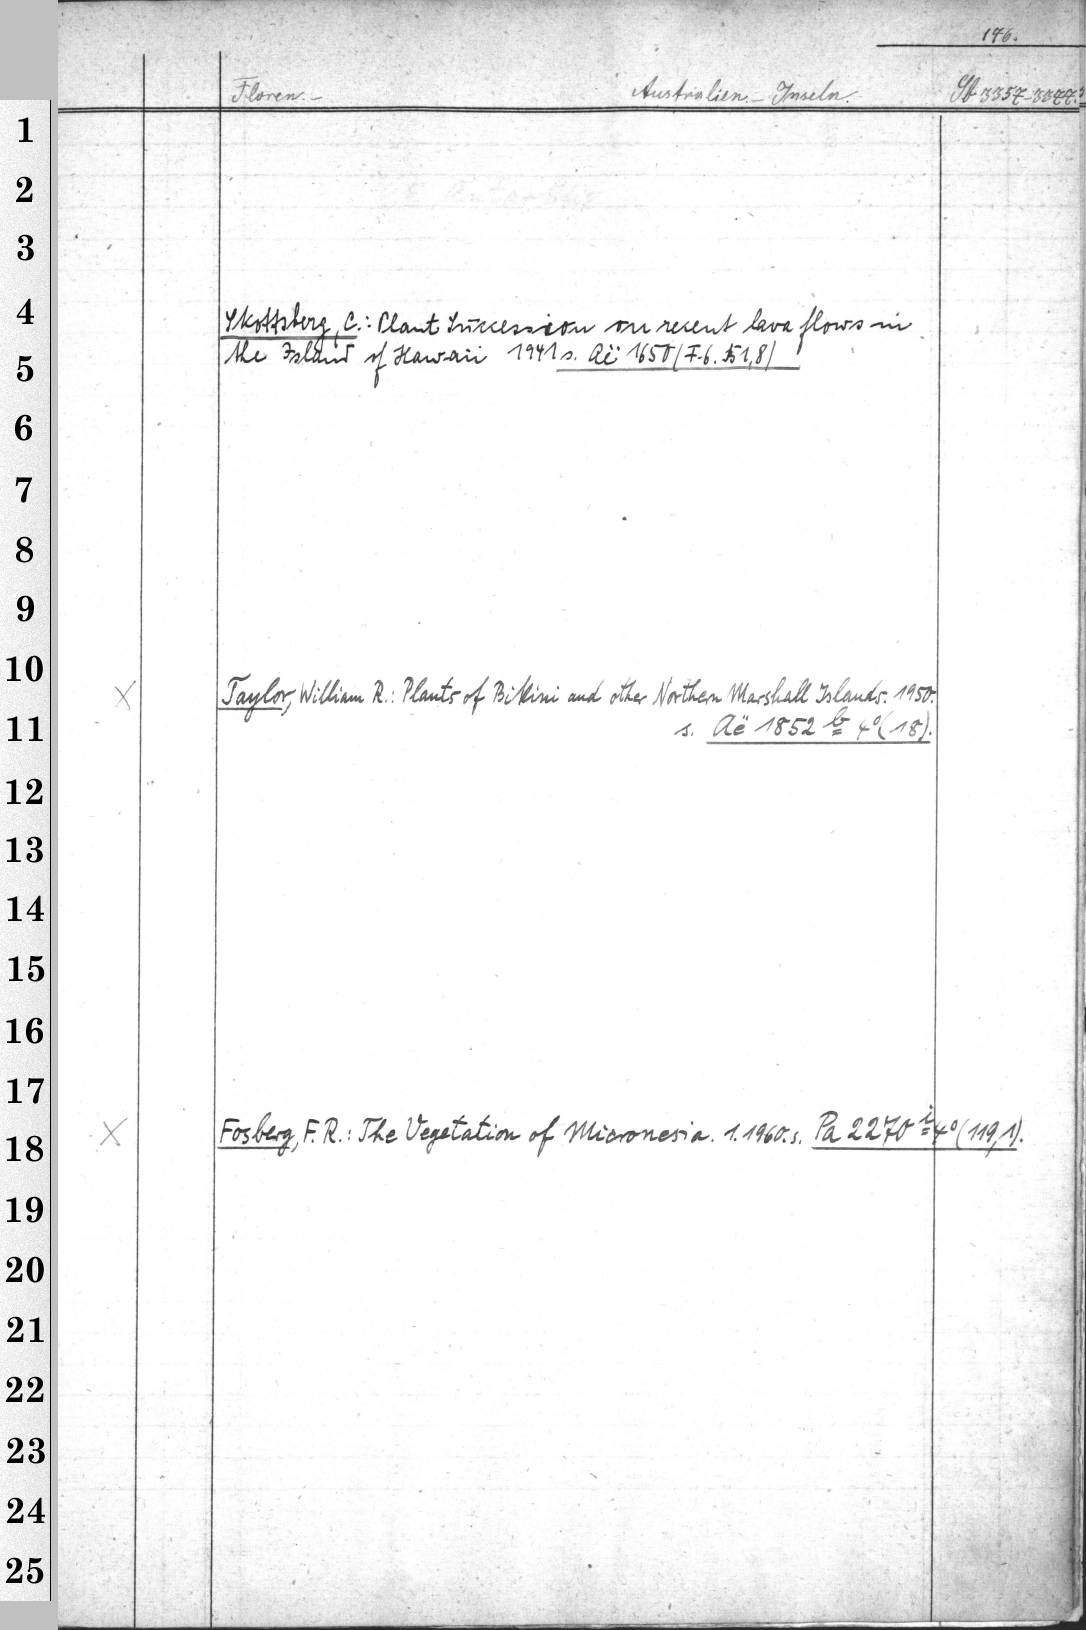 176.
Floren. - Australien. - Inseln. Sb 3357-3377.
1
2
3
4
Skottsberg, C.: Plant Succession on recent lava flows in
the Island of Hawaii 1941 s. Aë 1650 (F. 6. 151,8)
5
6
7
8
9
10
Taylor, William R.: Plants of Bikini and other Northern Marshall Islands. 1950.
11
s. Aë 1852 b 4° (18).
12
13
14
15
16
17
X Fosberg, F. R.: The Vegetation of Micronesia. 1. 1960. s. Pa 2270 i 4° (119,1).
18
19
20
21
22
23
24
25